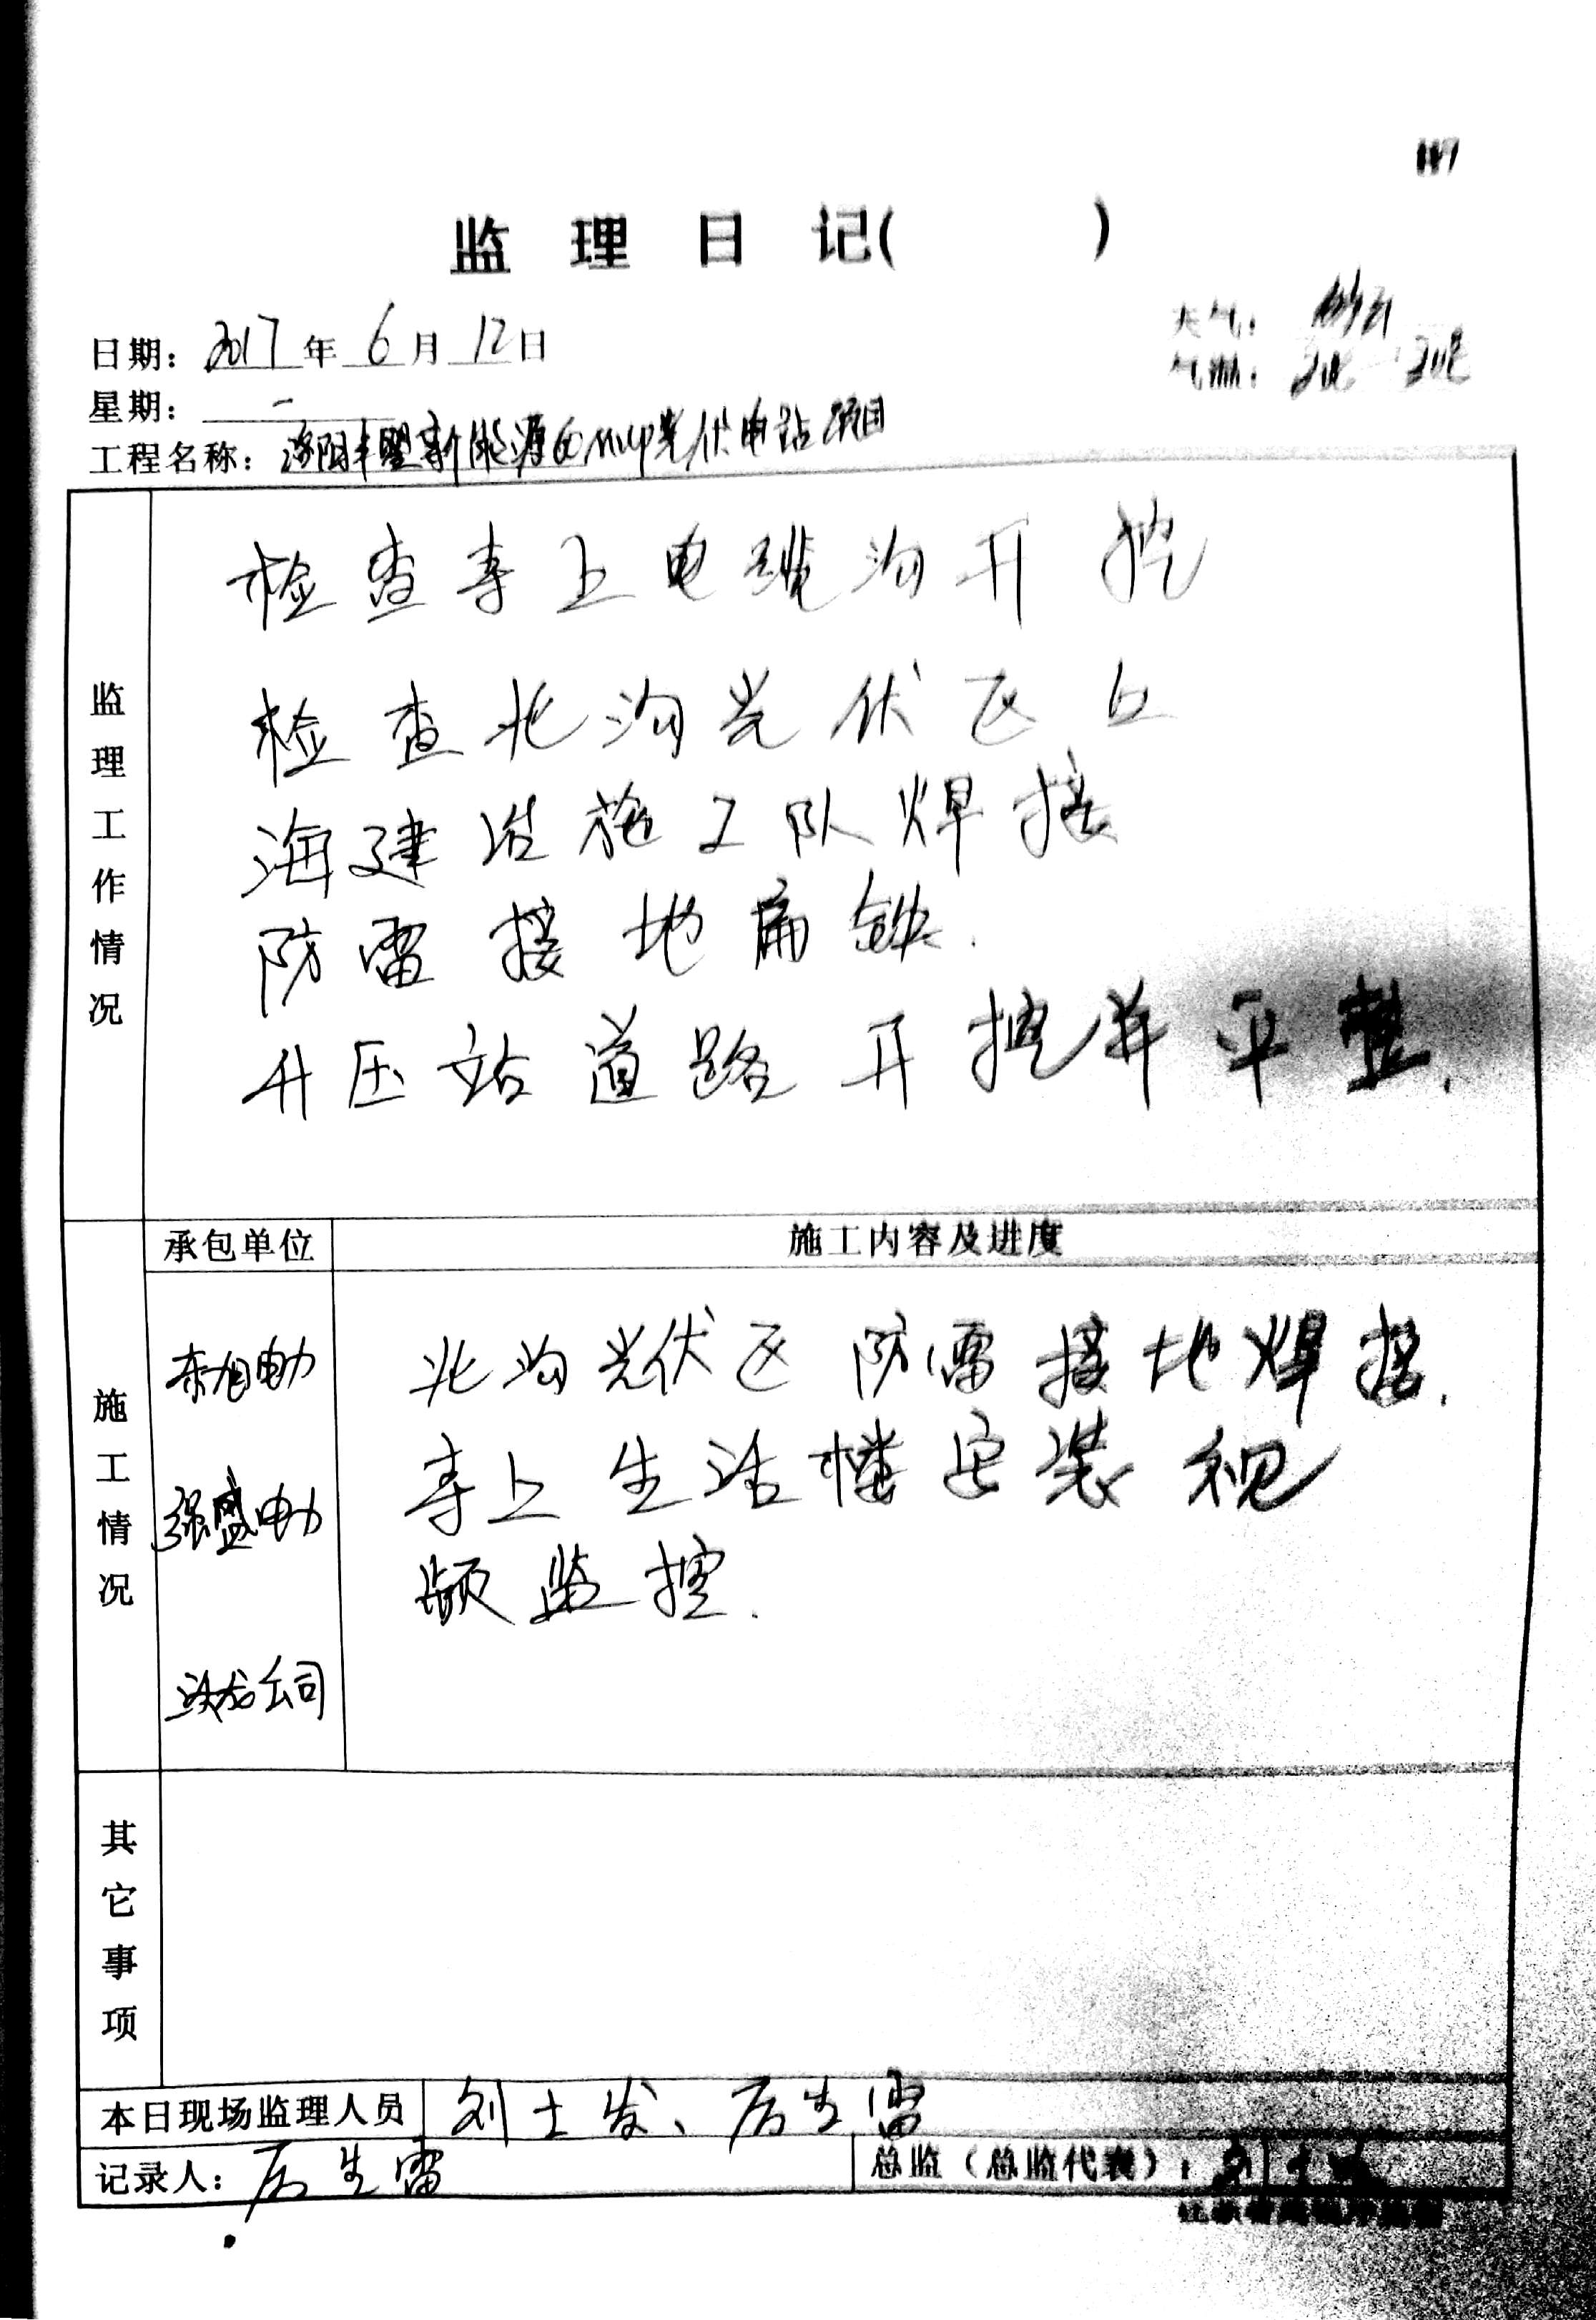 监理日记( )
日期：2017年6月12日
天气：多云
星期：一
气温：
工程名称：洛阳丰墅新能源60MWP光伏电站项目
监理工作情况
检查寺上电缆沟开挖
检查北沟光伏区上
海建浩施工队焊接
防雷接地扁铁.
升压站道路开挖并平整.
承包单位
施工内容及进度
施工情况
东旭电力
北沟光伏区防雷接地焊接.
强盛电力
寺上生活楼安装视
频监控.
公司
其它事项
本日现场监理人员
刘士发、厉生雷
记录人：厉生雷
总监（总监代表）：刘士发